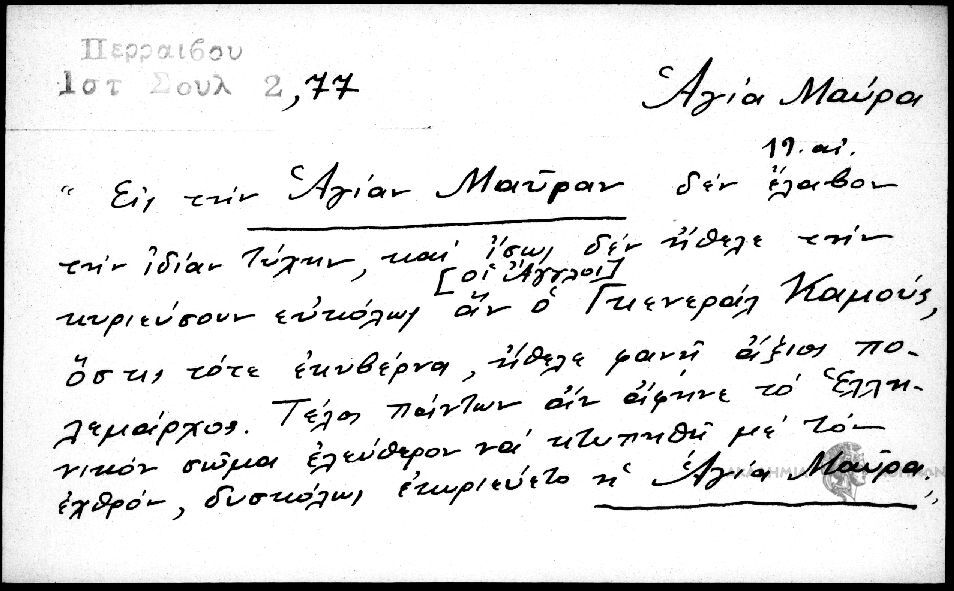 Περραιβου
1στ Σουλ 2,77
Ἁγία Μαύρα
19. αἰ.
" Εἰς τὴν Ἁγίαν Μαῦραν δέν ἔλαβον
τὴν ἰδίαν τύχην, καὶ ἴσως δέν ἤθελε τὴν
[οἱ Ἄγγλοι]
κυριεύσουν εὐκόλως ἄν ὁ Γκενεράλ Καμούς,
ὅστις τότε ἐκυβέρνα, ἤθελε φανῆ ἄξιος πο-
λεμάρχος. Τέλος πάντων ἄν ἄφηνε τό Ἑλλη-
νικόν σῶμα ἐλεύθερον νά κτυπηθῆ μέ τόν
ἐχθρόν, δυσκόλως ἐκυριεύετο ἡ Ἁγία Μαῦρα.,,